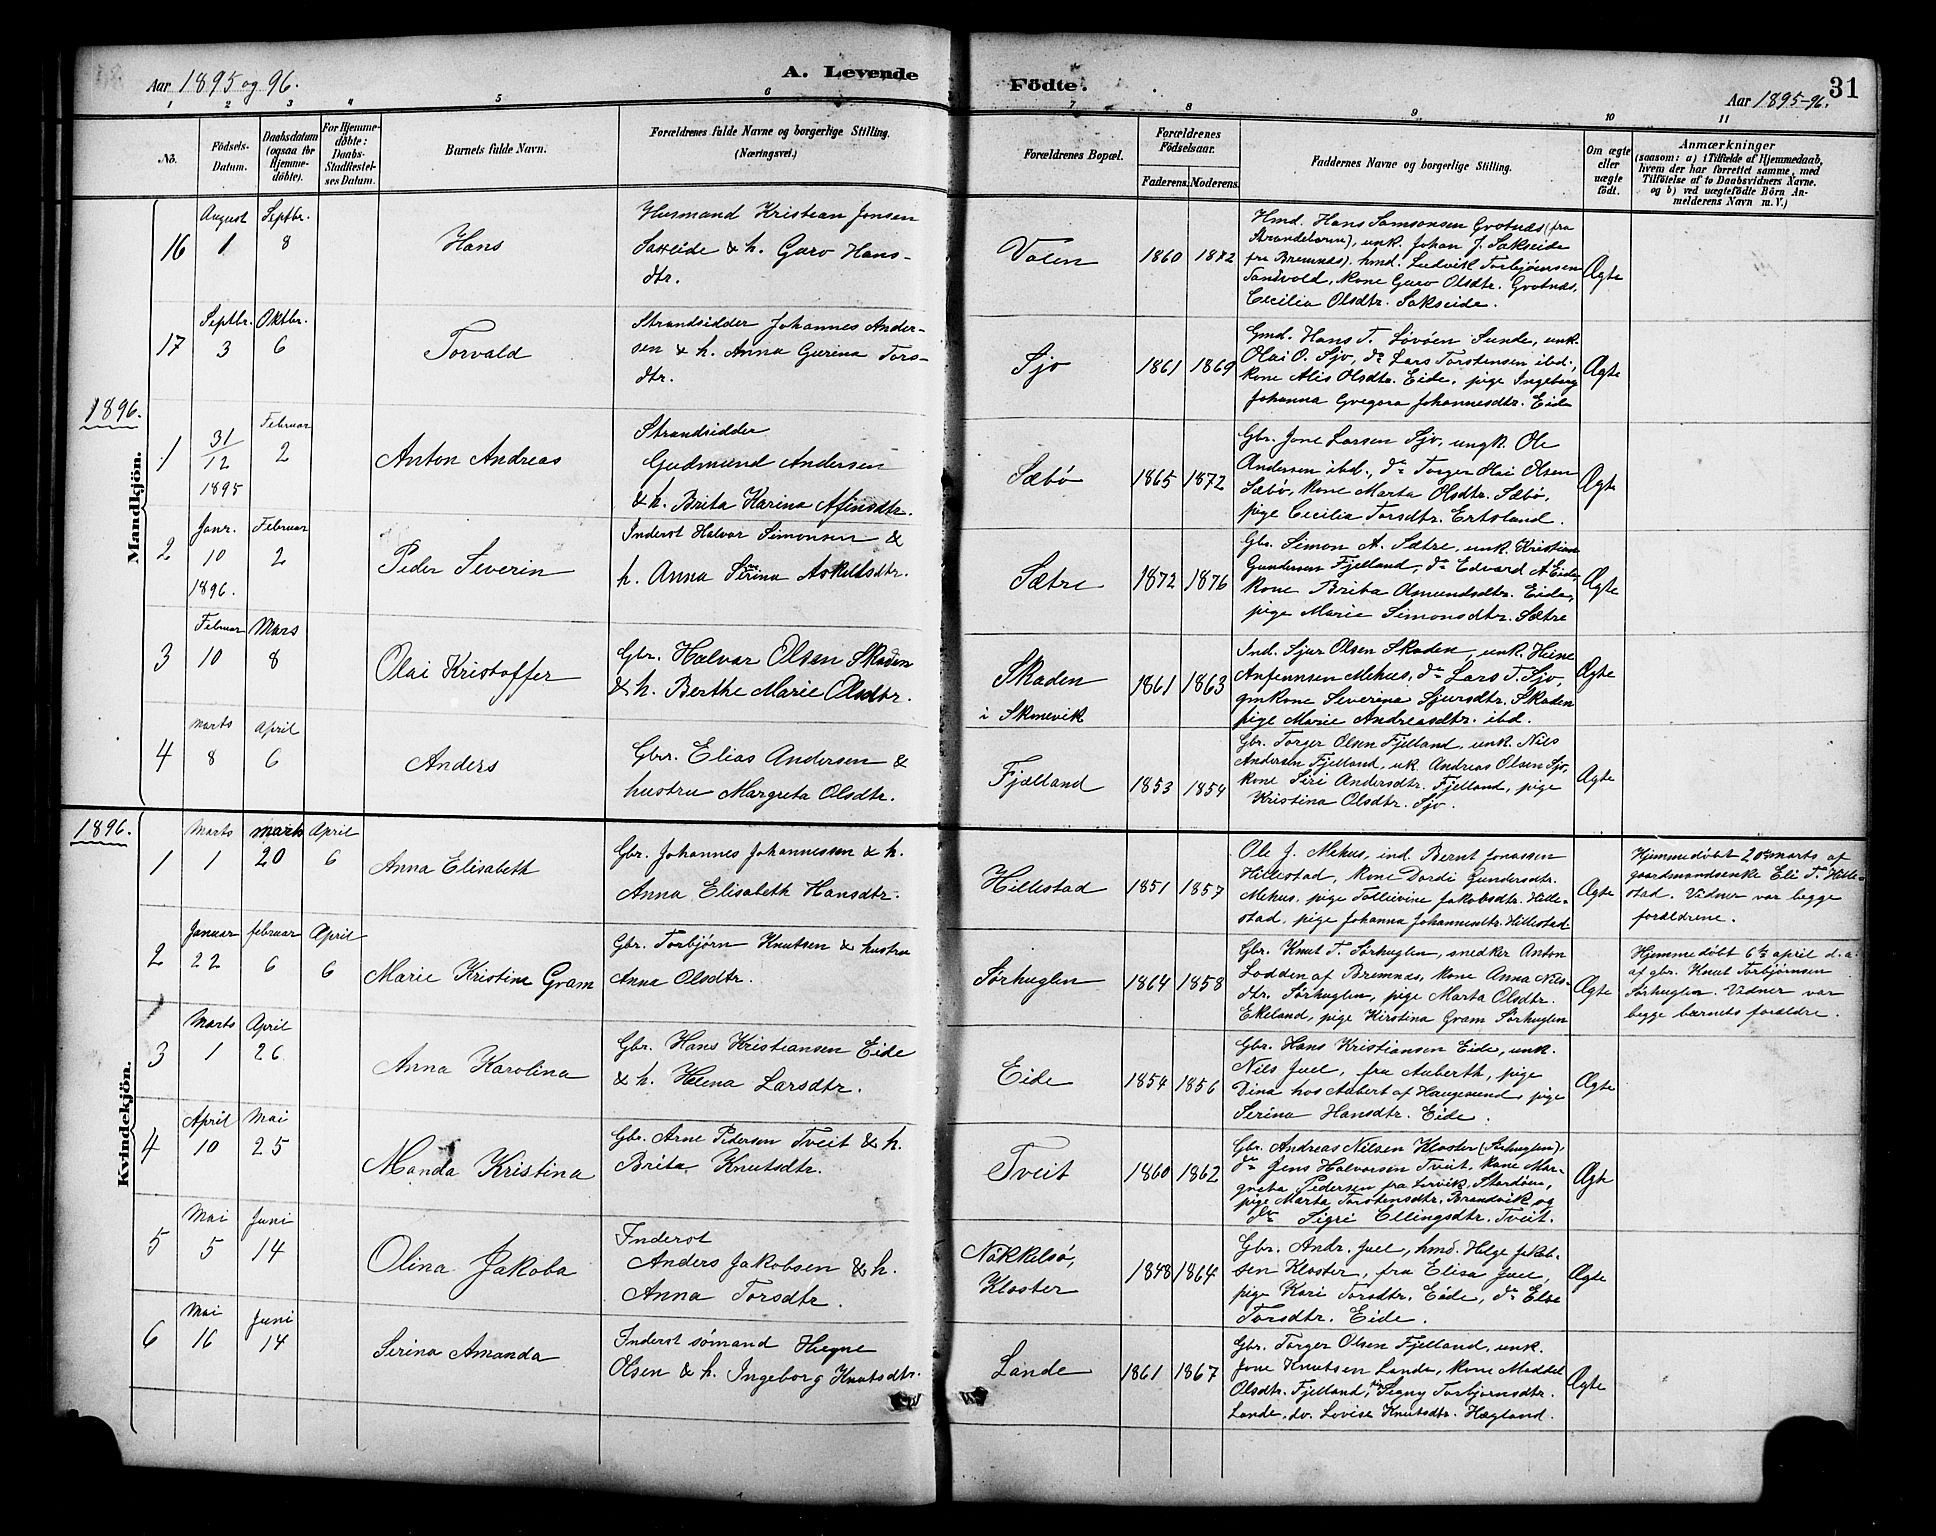 Aar 1895 og 96.
A. Levende
Födte.
Aar 1895-96.
31
1 2 3 4 5 6 7 8 9 10 11
No.
Födsels-Datum.
Daabsdatum (ogsaa for Hjemme-döbte).
For Hjemme-döbte: Daabs-Stadfæstel-ses Datum.
Barnets fulde Navn.
Forældrenes fulde Navne og borgerlige Stilling. (Næringsvei.)
Forældrenes Bopæl.
Forældrenes Födselsaar.
Faderens. Moderens.
Faddernes Navne og borgerlige Stilling.
Om ægte eller uægte födt.
Anmærkninger
(saasom: a) i Tilfælde af Hjemmedaab, hvem der har forrettet samme, med Tilföielse af to Daabsvidners Navne. og b) ved uægtefödte Börn An-melderens Navn m. V.)
Mandkjön.
16
August 1
Septbr. 8
Hans
Husmand Kristian Jonsen
Saxeide & h. Guro Hans-
dtr.
Valen
1860 1872
Hmd. Hans Samsonsen Grotnes (fra
Strandebarm), unk. Johan J. Sakseide
fra Bremnes). hmd. Ludvik Torbjörnsen
Sandvold, kone Guro Olsdtr. Grotnes,
Cecilia Olsdtr. Sakseide.
Ægte
17
Septbr. 3
Oktbr. 6
Torvald
Strandsidder Johannes Ander-
sen & h. Anna Gurina Tors-
dtr.
Sjo
1861 1869
Gmd. Hans T.Løvöen Sunde, unk.
Olai O. Sjo, do Lars Torstensen ibd.,
kone Alis Olsdtr. Eide, pige Ingeborg
Johanna Gregora Johannesdtr. Eide
Ægte
1896.
1
31/12 1895
Februar 2
Anton Andreas
Strandsidder
Gudmund Andersen
& h. Brita Karina Afinsdtr.
Sæbø
1865 1872
Gbr. Jone Larsen Sjo, ungk. Ole
Andersen ibd., do Torger Olai Olsen
Sæbø, kone Marta Olsdtr. Sæbø,
pige Cecilia Torsdtr. Ertsland.
Ægte
2
Janr. 10 1896.
Februar 2
Peder Severin
Inderst Halvor Simonsen &
h. Anna Serina Askildsdtr.
Sætre
1872 1876
Gbr. Simon A. Sætre, unk. Kristian
Gundersen Fjelland, do Edvard A Eide,
kone Brita Omundsdtr. Eide,
pige Marie Simonsdtr. Sætre
Ægte
3
Februar 10
Mars 8
Olai Kristoffer
Gbr. Halvar Olsen Skaden
& h. Berthe Marie Olsdtr.
Skaden
i Skonevik
1861 1863
Ind. Sjur Olsen Skaden, unk. Heine
Anfennsen Mehus, do Lars T. Sjo,
gmkone Severina Sjursdtr. Skaden
pige Marie Andreasdtr. ibd.
Ægte
4
Marts 8
April 6
Anders
Gbr. Elias Andersen &
hustru Margreta Olsdtr.
Fjælland
1853 1854
Gbr. Torger Olsen Fjelland, unk. Nils
Andersen Fjelland, uk. Andreas Olsen Sjo,
kone Siri Andersdtr. Fjelland, pige
Kristina Olsdtr. Sjo.
Ægte
1896.
Kvindekjön.
1
Marts 1
Marts 20
April 6
Anna Elisabeth
Gbr. Johannes Johannessen & h.
Anna Elisabeth Hansdtr.
Hillestad
1851 1857
Ole J. Mehus, ind. Bernt Jonassen
Hillestad, kone Dordi Gundersdtr.
Mehus, pige Tolleivine Jakobsdtr. Hille-
stad, pige Johanna Johannesdtr. Hillestad
Ægte
Hjemmedøbt 20de marts af
gaardmandsenke Eli T. Hille-
stad. Vidner var begge
forældrene.
2
Januar 22
februar 6
April 6
Marie Kristine Gram
Gbr. Torbjørn Knutsen & hustru
Anna Olsdtr.
Sørhuglen
1864 1858
Gbr. Knut T. Sørhuglen, snedker Anton
Lodden af Bremnes, kone Anna Nils-
dtr. Sørhuglen, pige Marta Olsdtr.
Ekeland, pige Kirstina Gram Sørhuglen
Ægte
Hjemmedøbt 6te april d.a.
af gbr. Knut Torbjørnsen
Sørhuglen. Vidner var
begge barnets forældre.
3
Marts 1
April 26
Anna Karolina
Gbr. Hans Kristiansen Eide
& h. Helena Larsdtr.
Eide
1854 1856
Gbr. Hans Kristiansen Eide, unk.
Nils Juel, fru Auberth, pige
Dina hos Aubert af Haugesund, pige
Serina Hansdtr. Eide.
Ægte
4
April 10
Mai 25
Manda Kristina
Gbr. Arne Pedersen Tveit & h.
Brita Knutsdtr.
Tveit
1860 1862
Gbr. Andreas Nilsen Kloster (Sørhuglen),
do Jens Halvorsen Tveit, kone Mar-
greta Pedersen fra Lervik, Stordöen,
pige Marta Torstensdtr. Brandvik og
do Sigri Ellingsdtr. Tveit.
Ægte
5
Mai 5
Juni 14
Olina Jakoba
Inderst
Anders Jakobsen & h.
Anna Torsdtr.
Nökkelsö,
Kloster
1848 1864
Gbr. Andr. Juel, hmd. Helge Jakob-
sen Kloster, fru Elisa Juel,
pige Kari Torsdtr. Eide, do Else
Torsdtr. Eide.
Ægte
6
Mai 16
Juni 14
Sirina Amanda
Inderst sömand Hægne
Olsen & h. Ingeborg Knutsdtr.
Lande
1861 1867
Gbr. Torger Olsen Fjelland, unk.
Jone Knutsen Lande, kone Maddel
Olsdtr. Fjelland, pige Signy Torbjørnsdtr.
Lande, do. Lovise Knutsdtr. Hægland.
Ægte